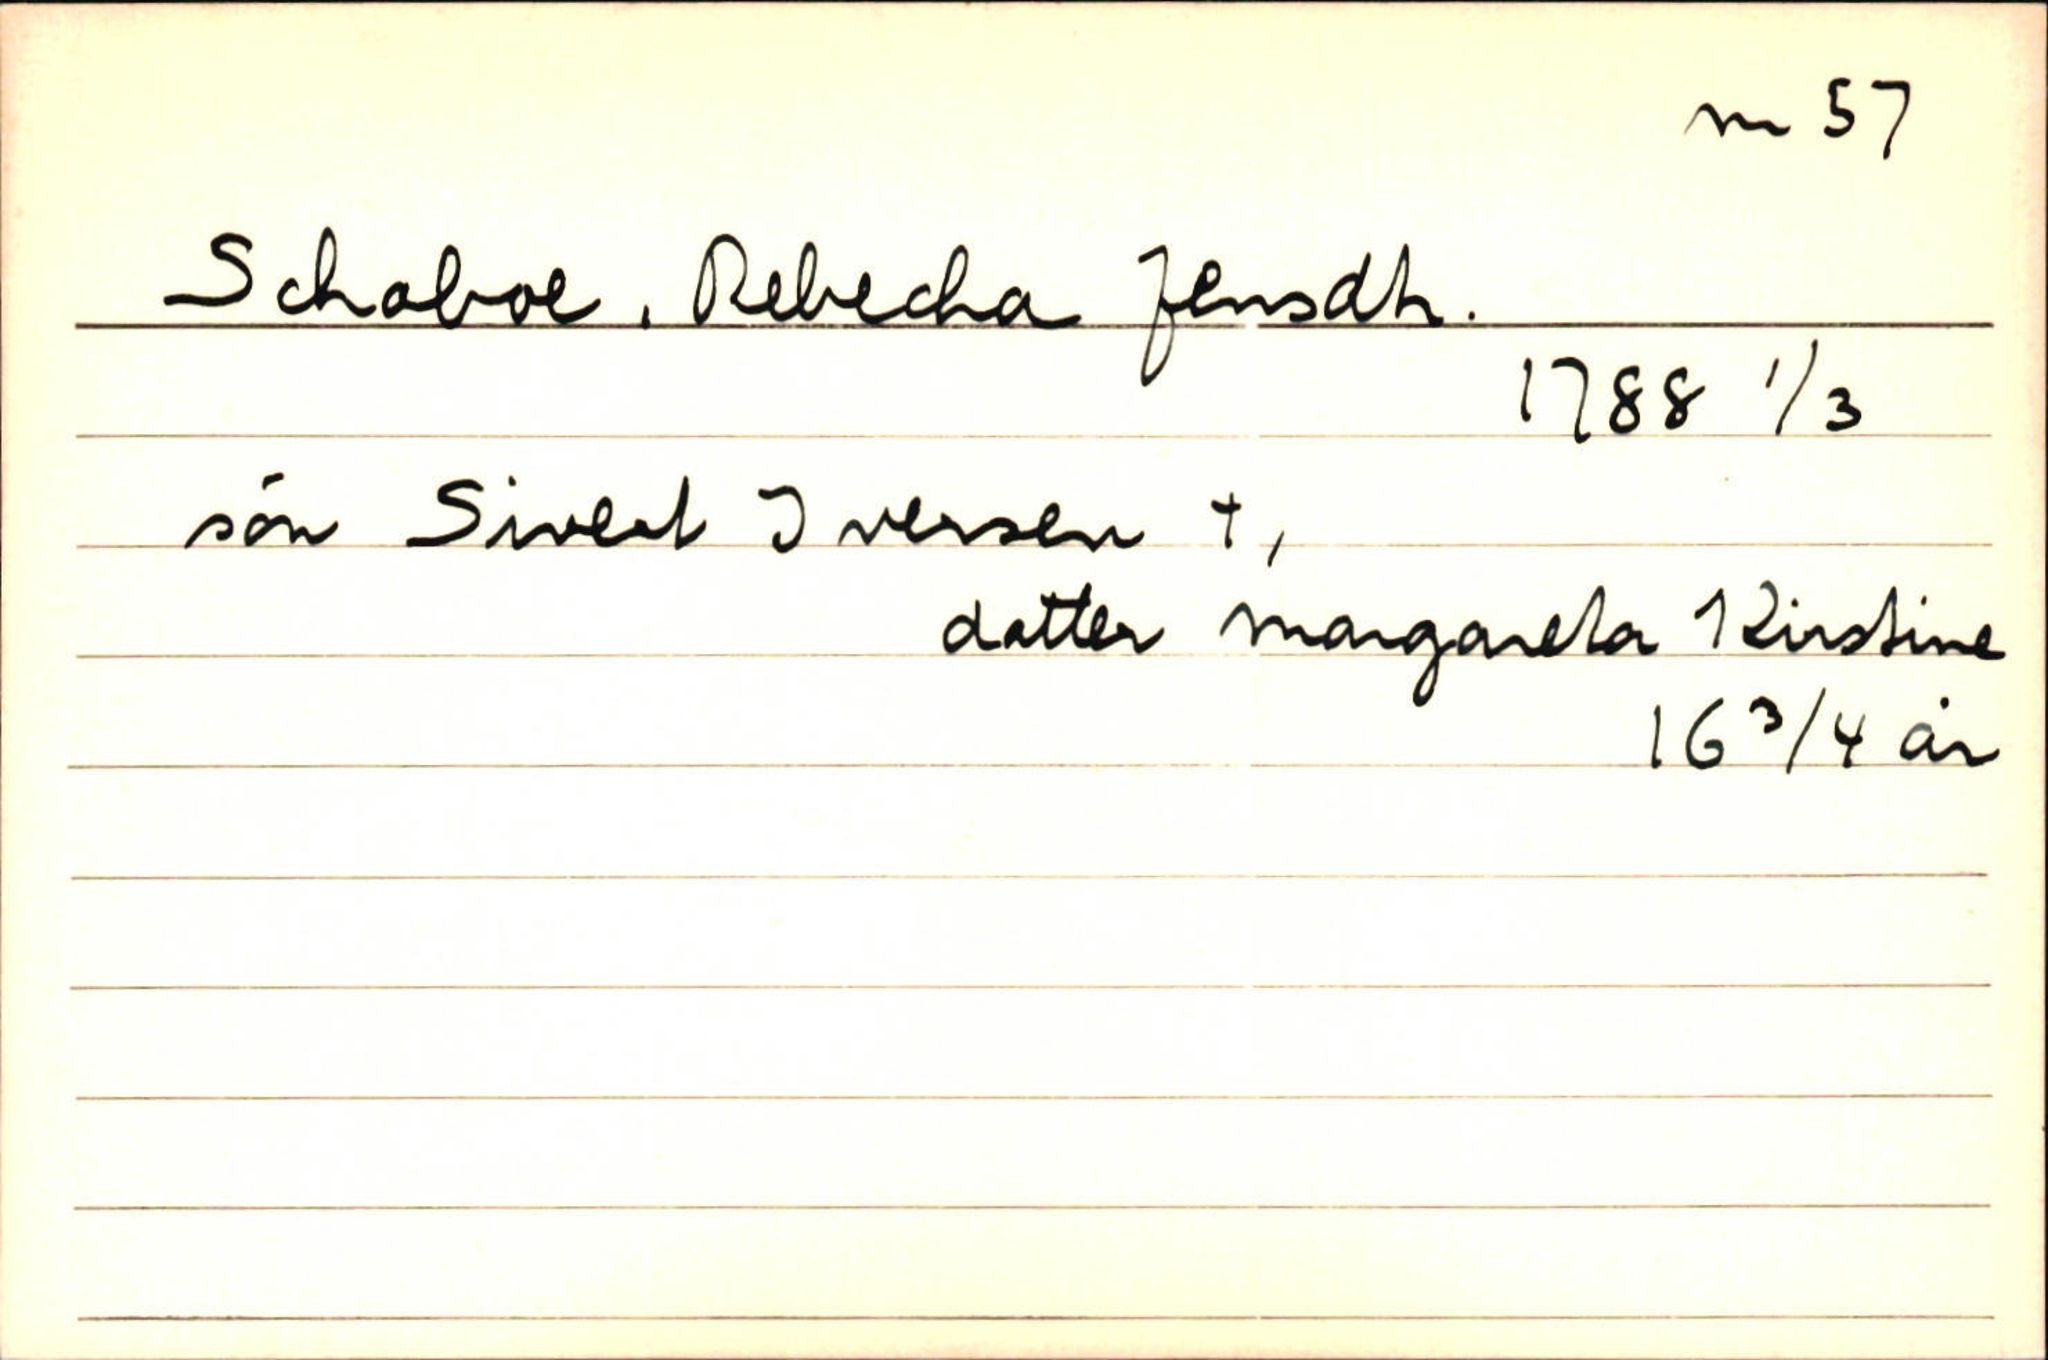 m 57
Schaboe, Rebecha Jensdtr.
1788 1/3
sön Sivert Iversen +,
datter Margareta Kirstine
16 3/4 år